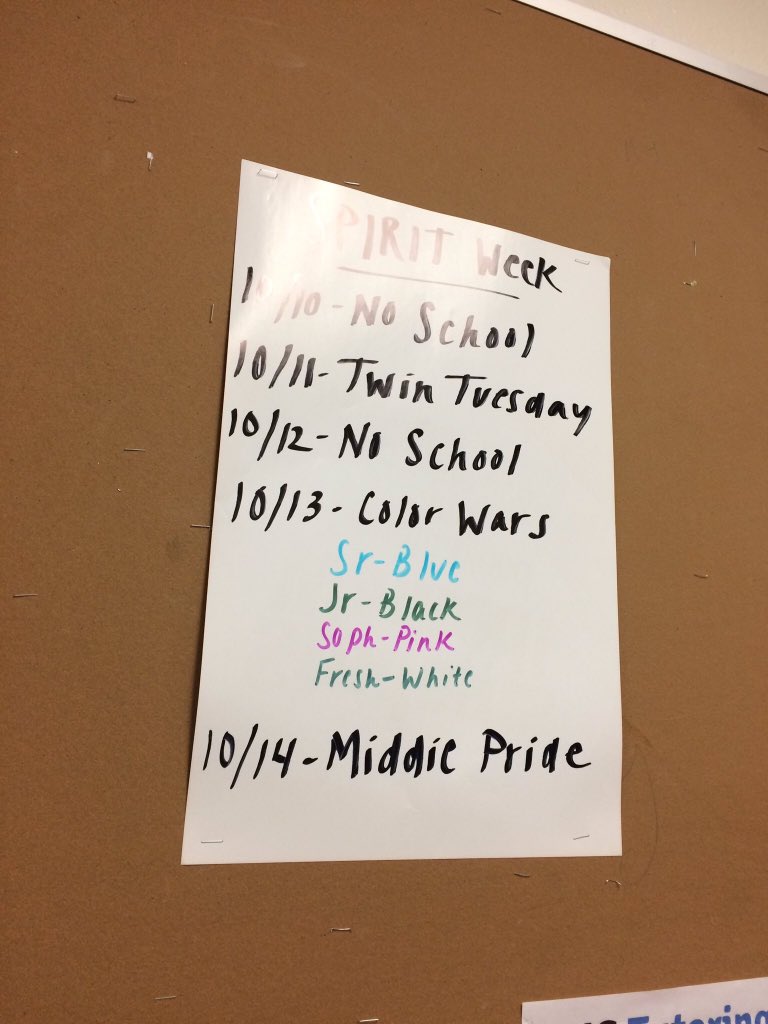 SPIRIT Week
10/10-No School
10/11-Twin Tuesday
10/12-No School
10/13-Color Wars
Sr-Blue
Jr-Black
Soph-Pink
Fresh-White
10/14-Middie Pride
Tutoring